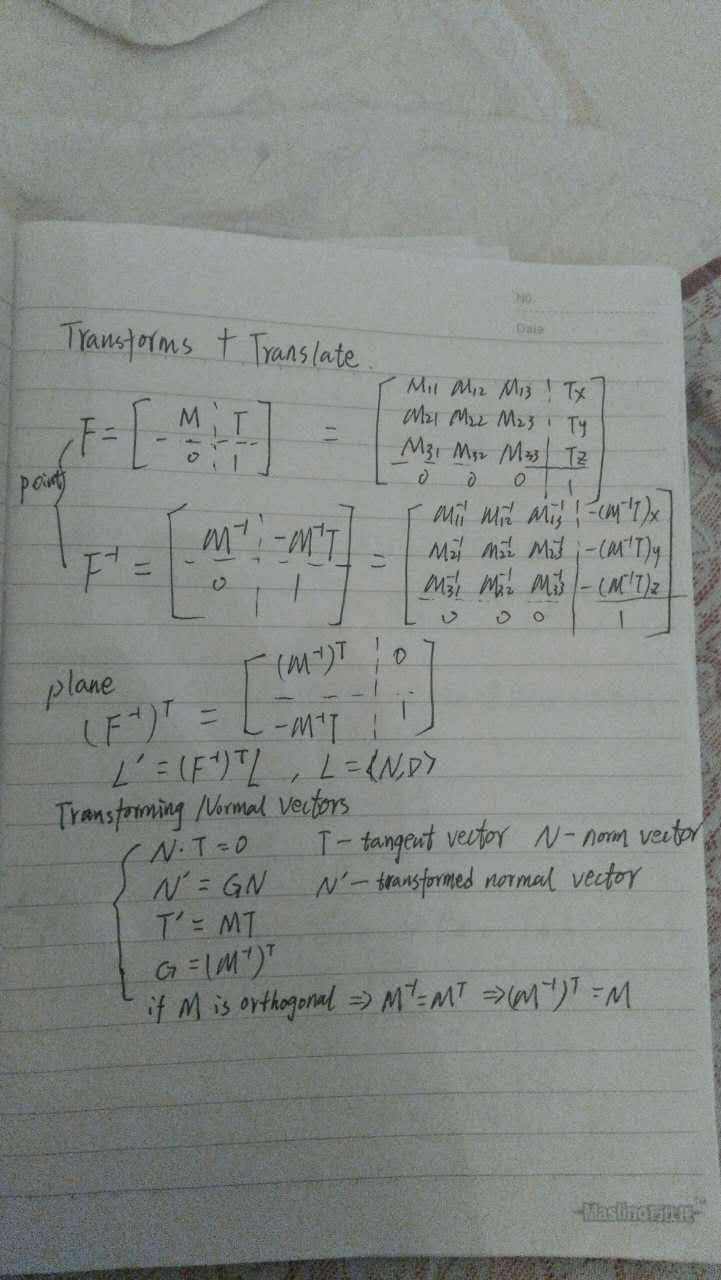 No.
Date
Transforms + Translate.
F = [ M ¦ T ] = [ M11 M12 M13 ¦ Tx
M21 M22 M23 ¦ Ty
0 ¦ 1 M31 M32 M33 ¦ Tz
0 0 0 | 1 ]
points
F⁻¹ = [ M⁻¹ ¦ -M⁻¹T ] = [ M11⁻¹ M12⁻¹ M13⁻¹ ¦ -(M⁻¹T)x
M21⁻¹ M22⁻¹ M23⁻¹ ¦ -(M⁻¹T)y
0 ¦ 1 M31⁻¹ M32⁻¹ M33⁻¹ ¦ -(M⁻¹T)z
0 0 0 | 1 ]
plane
(F⁻¹)ᵀ = [ (M⁻¹)ᵀ ¦ 0
-M⁻¹T ¦ 1 ]
L' = (F⁻¹)ᵀL , L = ⟨N,D⟩
Transforming Normal vectors
N·T = 0 T - tangent vector N - norm vector
N' = GN N' - transformed normal vector
T' = MT
G = (M⁻¹)ᵀ
if M is orthogonal ⇒ M⁻¹ = Mᵀ ⇒ (M⁻¹)ᵀ = M